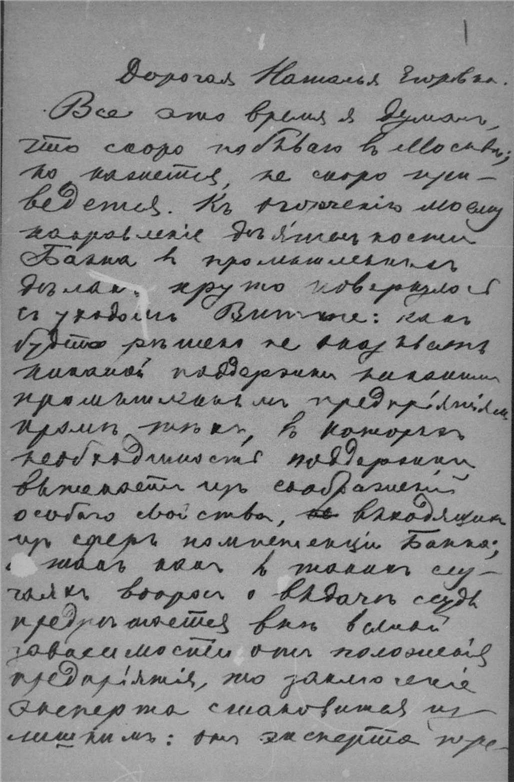 1
Дорогая Наталья Егоровна.
Все это время я думалъ,
что скоро побываю въ Москвѣ;
но кажется, не скоро при-
ведется. Къ огорченію моему
направленіе дѣятельности
Банка въ промышленныхъ
дѣлахъ круто повернулось
съ уходомъ Витте: какъ
будто рѣшено не оказывать
никакой поддержки никакимъ
промышленнымъ предпріятіямъ
кромѣ тѣхъ, въ которыхъ
необходимость поддержки
вытекаетъ изъ соображеній
особаго свойства, выходящихъ
изъ сферъ компетенціи Банка;
а такъ какъ въ такихъ слу-
чаяхъ вопросъ о выдачѣ ссудъ
предрѣшается внѣ всякой
зависимости отъ положенія
предпріятія, то заключеніе
эксперта становится из-
лишнимъ: отъ эксперта тре-